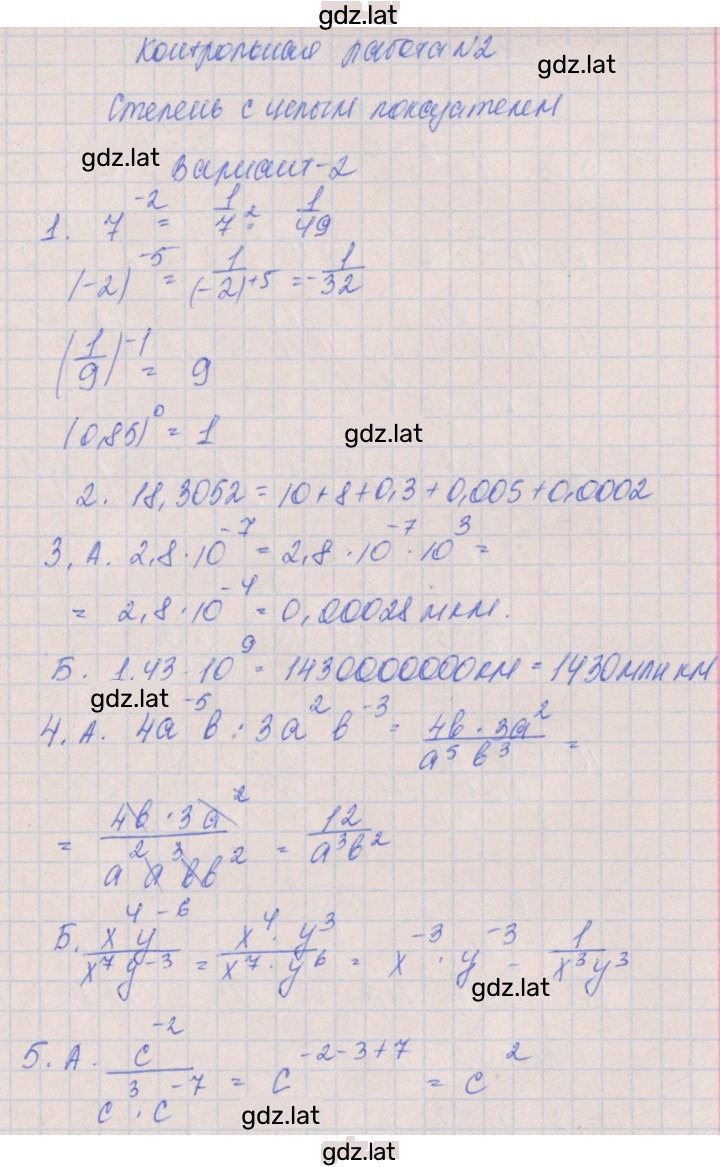 gdz.lat
Контрольная работа №2
gdz.lat
Степень с целым показателем
gdz.lat
Вариант-2
1. 7^-2 = 1/7^2 = 1/49
(-2)^-5 = 1/(-2)^+5 = -1/32
(1/9)^-1 = 9
(0,85)^0 = 1
gdz.lat
2. 18,3052 = 10+8+0,3+0,005+0,0002
3. А. 2,8·10^-7 = 2,8·10^-7·10^3 =
= 2,8·10^-4 = 0,00028 мкм.
Б. 1.43·10^9 = 1430000000км = 1430 млн км
gdz.lat
4. А. 4a^-5 b · 3a^2 b^-3 = 4b·3a^2/a^5 b^3 =
= 4b·3a^2/a^2 a^3 b b^2 = 12/a^3 b^2
Б. x^4 y^-6/x^7 y^-3 = x^4·y^3/x^7·y^6 = x^-3·y^-3 = 1/x^3 y^3
gdz.lat
5. А. c^-2/c^3·c^-7 = c^-2-3+7 = c^2
gdz.lat
gdz.lat